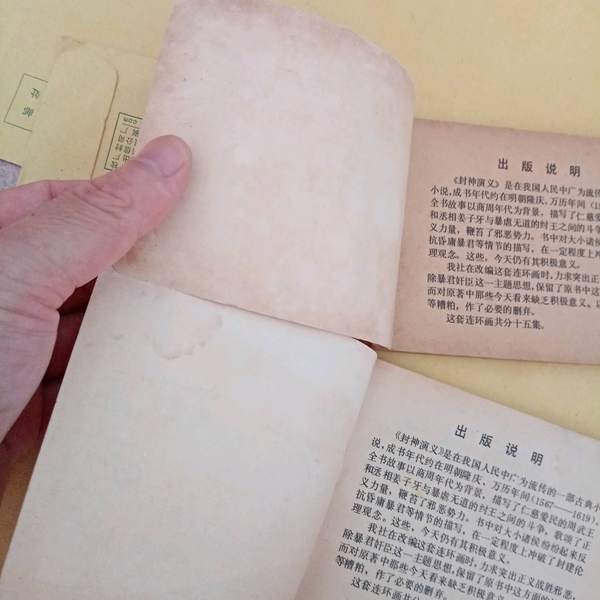 出版说明
《封神演义》是在我国人民中广为流传
小说,成书年代约在明朝隆庆、万历年间(15
全书故事以商周年代为背景,描写了仁慈爱
和丞相姜子牙与暴虐无道的纣王之间的斗争
义力量,鞭笞了邪恶势力。书中对大小诸侯
抗昏庸暴君等情节的描写,在一定程度上冲
理观念。这些,今天仍有其积极意义。
我社在改编这套连环画时,力求突出正
除暴君奸臣这一主题思想,保留了原书中这
而对原著中那些今天看来缺乏积极意义、
等糟粕,作了必要的删弃。
这套连环画共分十五集。
出版说明
《封神演义》是在我国人民中广为流传的一部古典小
说,成书年代约在明朝隆庆、万历年间(1567—1619)。
全书故事以商周年代为背景,描写了仁慈爱民的周武王
和丞相姜子牙与暴虐无道的纣王之间的斗争,歌颂了正
义力量,鞭笞了邪恶势力。书中对大小诸侯纷纷起来反
抗昏庸暴君等情节的描写,在一定程度上冲破了封建伦
理观念。这些,今天仍有其积极意义。
我社在改编这套连环画时,力求突出正义战胜邪恶,
除暴君奸臣这一主题思想,保留了原书中这方面的
而对原著中那些今天看来缺乏积极意义、
等糟粕,作了必要的删弃。
邮 址
com